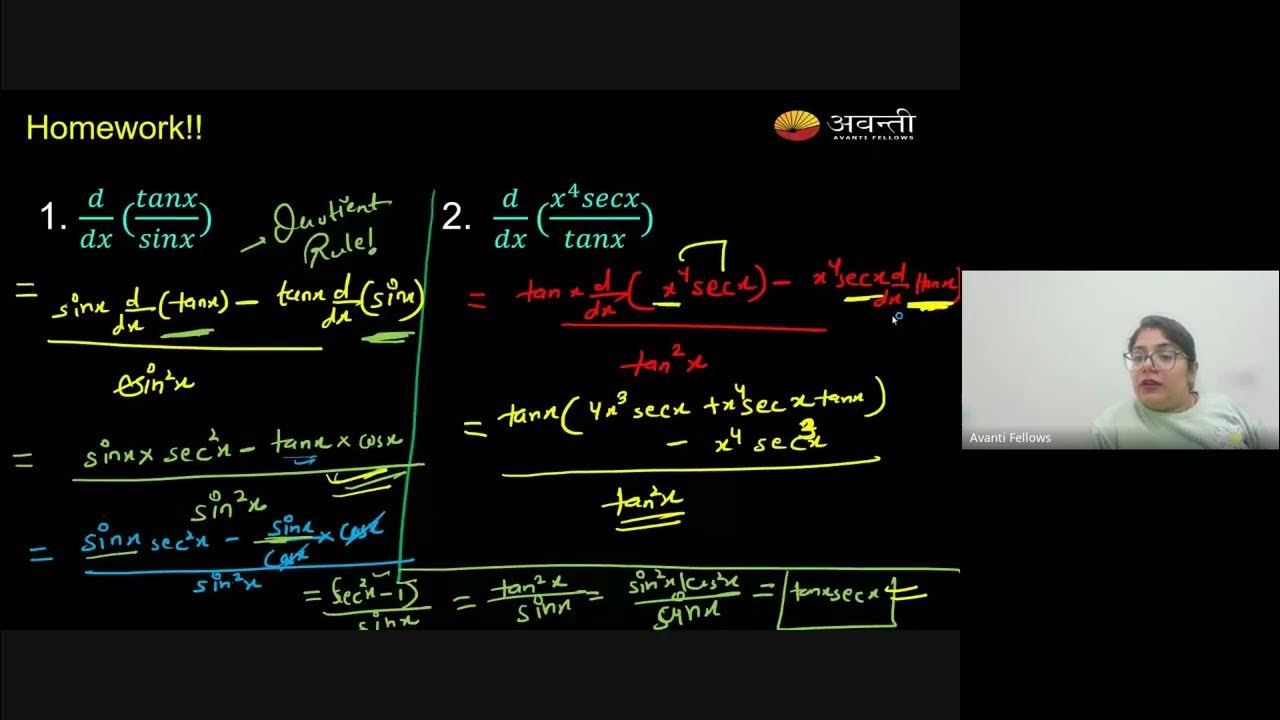 Homework!!
अवन्ती
AVANTI FELLOWS
1. d/dx (tanx/sinx)
→ Quotient
Rule!
= sinx d/dx (tanx) − tanx d/dx (sinx)
sin²x
= sinx × sec²x − tanx × cosx
sin²x
= sinx sec²x − sinx/cosx × cosx
sin²x
= (sec²x − 1)/sinx = tan²x/sinx = sin²x/cos²x/sinx = tanxsecx
2. d/dx (x⁴secx/tanx)
= tanx d/dx (x⁴secx) − x⁴secx d/dx (tanx)
tan²x
= tanx(4x³secx + x⁴secx tanx)
− x⁴ sec³x
tan²x
Avanti Fellows